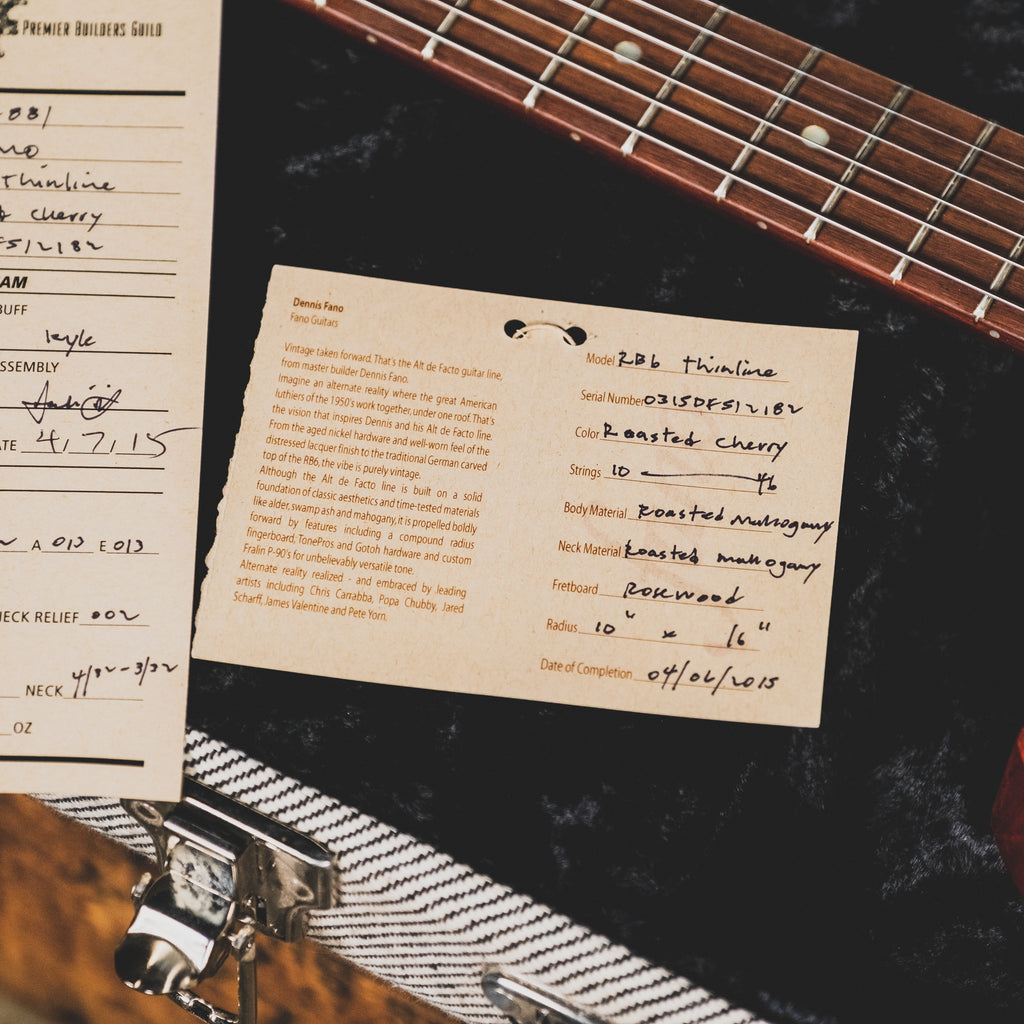 PREMIER BUILDERS GUILD
881
no
thinline
cherry
DF512182
AM
BUFF
Kyle
SSEMBLY
ATE 4/7/15
A 013 E 013
NECK RELIEF .002
NECK 4/32-3/32
OZ
Dennis Fano
Fano Guitars
Vintage taken forward. That's the Alt de Facto guitar line,
from master builder Dennis Fano.
Imagine an alternate reality where the great American
luthiers of the 1950's work together, under one roof. That's
the vision that inspires Dennis and his Alt de Facto line.
From the aged nickel hardware and well-worn feel of the
distressed lacquer finish to the traditional German carved
top of the RB6, the vibe is purely vintage.
Although the Alt de Facto line is built on a solid
foundation of classic aesthetics and time-tested materials
like alder, swamp ash and mahogany, it is propelled boldly
forward by features including a compound radius
fingerboard, TonePros and Gotoh hardware and custom
Fralin P-90's for unbelievably versatile tone.
Alternate reality realized - and embraced by leading
artists including Chris Carrabba, Popa Chubby, Jared
Scharff, James Valentine and Pete Yorn.
Model RB6 Thinline
Serial Number 0315DF512182
Color Roasted Cherry
Strings 10 — 46
Body Material Roasted Mahogany
Neck Material Roasted mahogany
Fretboard Rosewood
Radius 10" x 16"
Date of Completion 04/06/2015